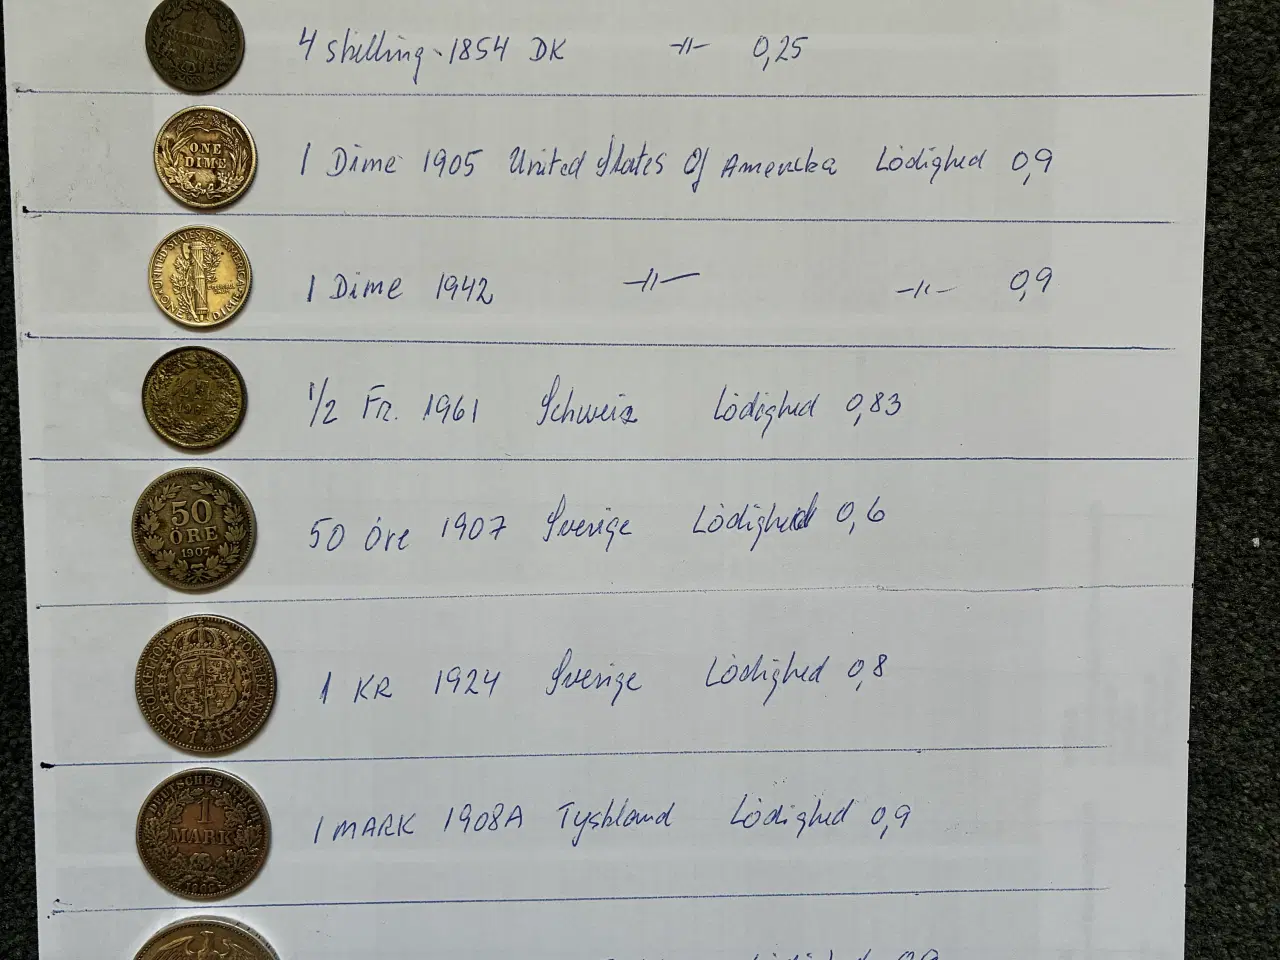 4 skilling 1854 DK -〃- 0,25
ONE DIME
1 Dime 1905 United States Of Amerika Lödighed 0,9
UNITED STATES OF AMERICA ONE DIME
1 Dime 1942 -〃- -〃- 0,9
1/2 Fr. 1961 Schweiz Lödighed 0,83
50 ÖRE 1907
50 öre 1907 Sverige Lödighed 0,6
MED FOLKET FÖR FOSTERLANDET 1 KR
1 KR 1924 Sverige Lödighed 0,8
DEUTSCHES REICH 1 MARK 1908
1 MARK 1908A Tyskland Lödighed 0,9